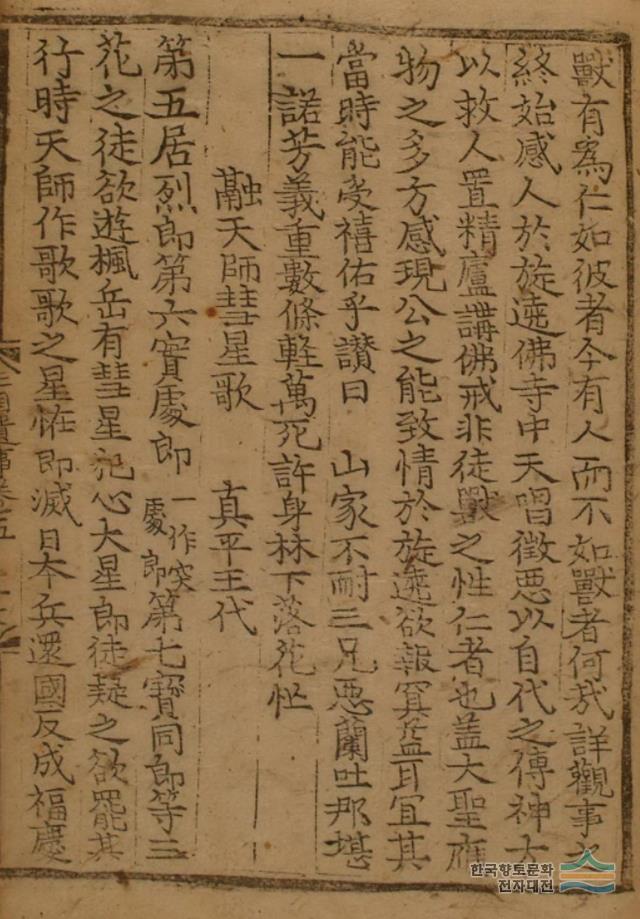 獸有爲仁如彼者今有人而不如獸者何哉詳觀事之
終始感人於旋遶佛寺中天唱徵惡以自代之傳神方
以救人置精廬講佛戒非徒獸之性仁者也盖大聖應
物之多方感現公之能致情於旋遶欲報冥益耳宜其
當時能受禧佑乎讚曰 山家不耐三兄惡蘭吐那堪
一諾芳義重數條輕萬死許身林下落花忙
融天師彗星歌 真平王代
第五居烈郎第六實處郎一作突處郎第七寶同郎等三
花之徒欲遊楓岳有彗星犯心大星郎徒疑之欲罷其
行時天師作歌歌之星恠即滅日本兵還國反成福慶
三國遺事卷五
한국향토문화
전자대전